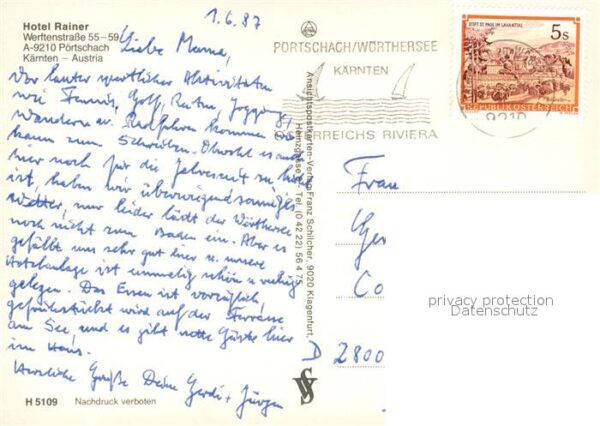 Hotel Rainer
Werftenstraße 55–59
A-9210 Pörtschach
Kärnten – Austria
1.6.87
Liebe Mama,
Vor lauter sportlicher Aktivitäten
wie Tennis, Golf, Reiten, Jogging,
Wandern u. Radfahren kommen wir
kaum zum Schreiben. Obwohl es auch
hier noch für die Jahreszeit zu kühl
ist, haben wir überwiegend sonniges
Wetter, nur leider lädt der Wörthersee
noch nicht zum Baden ein. Aber es
gefällt uns sehr gut hier u. unsere
Hotelanlage ist unwahrscheinlich schön u. ruhig
gelegen. Das Essen ist vorzüglich,
gefrühstückt wird auf der Terrasse
am See, und es gibt nette Gäste hier
im Haus.
Herzliche Grüße Deine Gerdi + Jürgen
H 5109 Nachdruck verboten
Ansichtspostkarten-Verlag Franz Schilcher, 9020 Klagenfurt,
Tel. (0 42 22) 56 4 75
PÖRTSCHACH/WÖRTHERSEE
KÄRNTEN
ÖSTERREICHS RIVIERA
9210
STIFT ST. PAUL IM LAVANTTAL
5 S
REPUBLIK ÖSTERREICH
Frau
Ger
Co
D 2800
privacy protection
Datenschutz